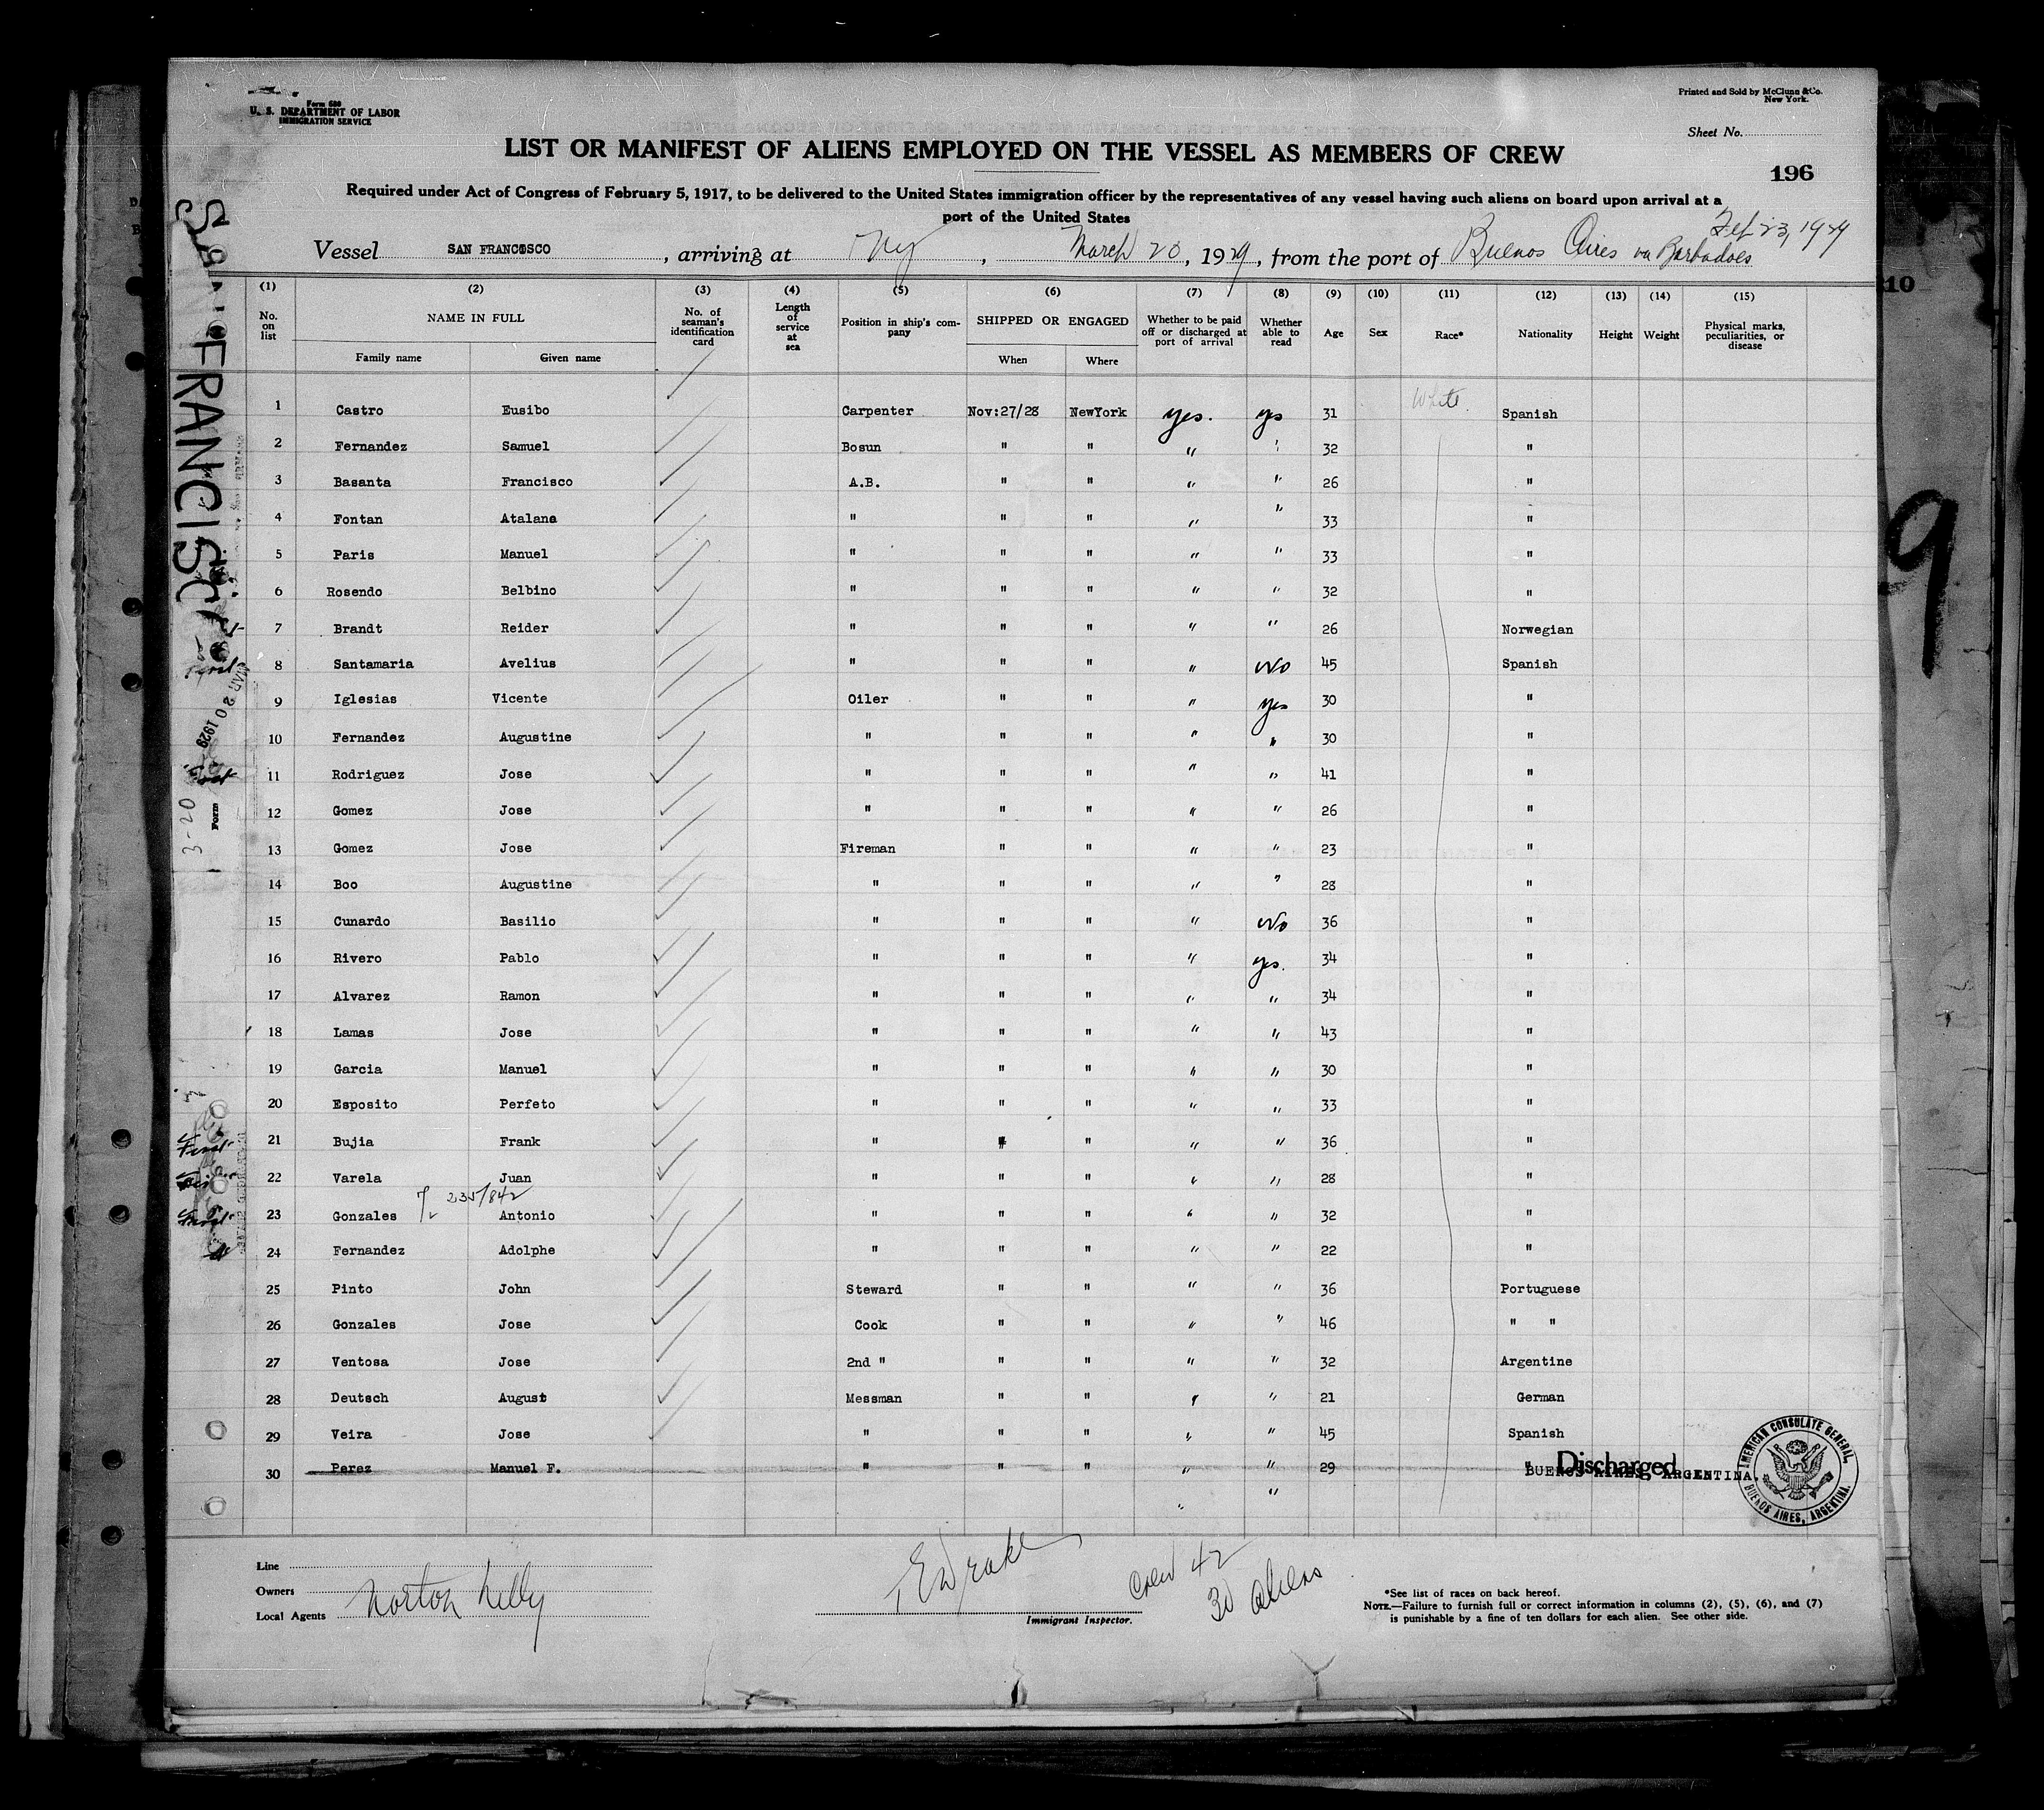 Form 680
U. S. DEPARTMENT OF LABOR
IMMIGRATION SERVICE
Printed and Sold by McClunn & Co.
New York.
Sheet No.
LIST OR MANIFEST OF ALIENS EMPLOYED ON THE VESSEL AS MEMBERS OF CREW
196
Required under Act of Congress of February 5, 1917, to be delivered to the United States immigration officer by the representatives of any vessel having such aliens on board upon arrival at a
port of the United States
Feb 23, 1929
Vessel SAN FRANCISCO, arriving at Ny, March 20, 1929, from the port of Buenos Aires via Barbadoes
(1) (2) (3) (4) (5) (6) (7) (8) (9) (10) (11) (12) (13) (14) (15)
No. on list NAME IN FULL Family name Given name No. of seaman's identification card Length of service at sea Position in ship's company SHIPPED OR ENGAGED When Where Whether to be paid off or discharged at port of arrival Whether able to read Age Sex Race* Nationality Height Weight Physical marks, peculiarities, or disease
1 Castro Eusibo Carpenter Nov:27/28 NewYork yes. yes 31 White Spanish
2 Fernandez Samuel Bosun " " " " 32 "
3 Basanta Francisco A.B. " " " " 26 "
4 Fontan Atalana " " " " " 33 "
5 Paris Manuel " " " " " 33 "
6 Rosendo Belbino " " " " " 32 "
7 Brandt Reider " " " " " 26 Norwegian
8 Santamaria Avelius " " " " No 45 Spanish
9 Iglesias Vicente Oiler " " " yes 30 "
10 Fernandez Augustine " " " " " 30 "
11 Rodriguez Jose " " " " " 41 "
12 Gomez Jose " " " " " 26 "
13 Gomez Jose Fireman " " " " 23 "
14 Boo Augustine " " " " " 28 "
15 Cunardo Basilio " " " " No 36 "
16 Rivero Pablo " " " " yes. 34 "
17 Alvarez Ramon " " " " " 34 "
18 Lamas Jose " " " " " 43 "
19 Garcia Manuel " " " " " 30 "
20 Esposito Perfeto " " " " " 33 "
21 Bujia Frank " " " " " 36 "
22 Varela Juan " " " " " 28 "
235/842
23 Gonzales Antonio " " " " " 32 "
24 Fernandez Adolphe " " " " " 22 "
25 Pinto John Steward " " " " 36 Portuguese
26 Gonzales Jose Cook " " " " 46 " "
27 Ventosa Jose 2nd " " " " " 32 Argentine
28 Deutsch August Messman " " " " 21 German
29 Veira Jose " " " " " 45 Spanish
30 Perez Manuel F. " " " " " 29 " Discharged
BUENOS AIRES ARGENTINA.
" "
AMERICAN CONSULATE GENERAL, BUENOS AIRES, ARGENTINA.
Line
Owners
Local Agents Norton Lilly
Drake
Immigrant Inspector.
Crew 42
30 aliens
*See list of races on back hereof.
NOTE.—Failure to furnish full or correct information in columns (2), (5), (6), and (7)
is punishable by a fine of ten dollars for each alien. See other side.
SAN FRANCISCO
MAR 20 1929
3-20
Form
10
9